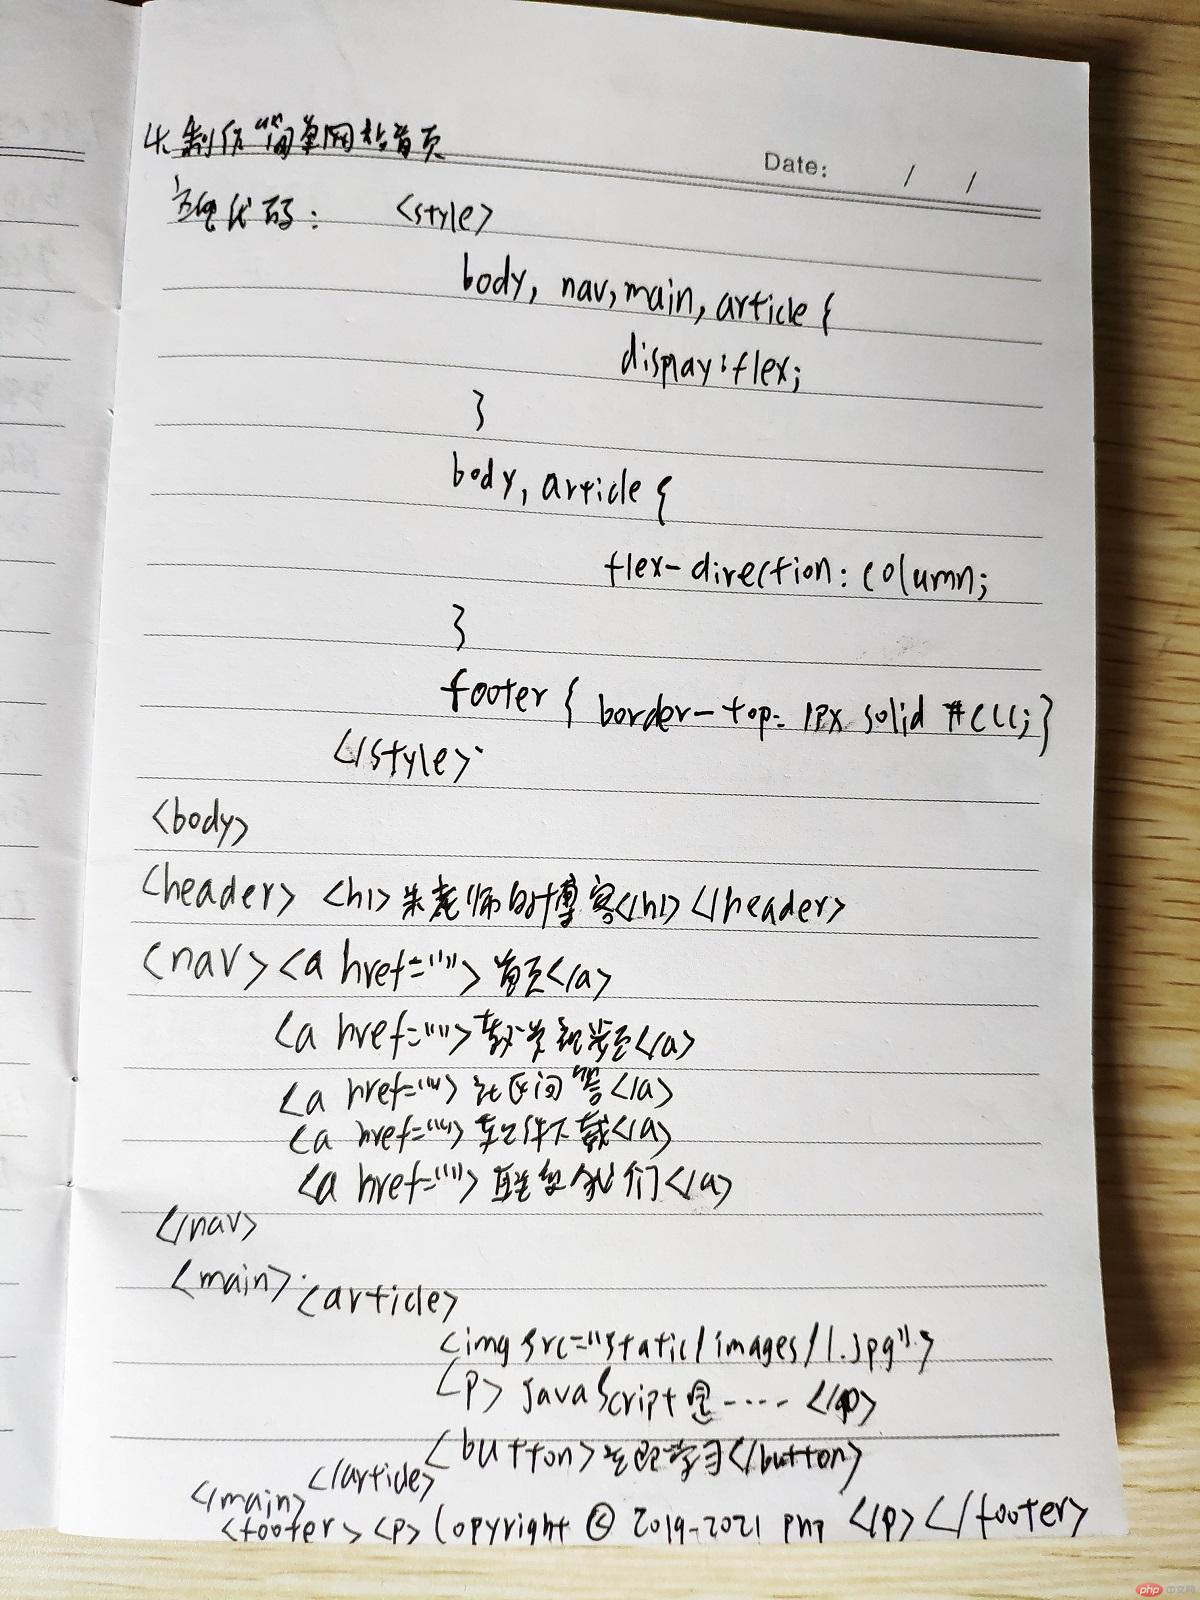 4. 制作"简单网站首页
Date: / /
关键代码: <style>
body, nav, main, article {
display:flex;
}
body, article {
flex-direction: column;
}
footer { border-top: 1px solid #ccc; }
</style>
<body>
<header> <h1>朱老师的博客</h1> </header>
<nav> <a href=""> 首页</a>
<a href="">教学视频</a>
<a href=""> 社区问答</a>
<a href=""> 软件下载</a>
<a href=""> 联系我们</a>
</nav>
<main> <article>
<img src="static/images/1.jpg">
<p> JavaScript是····· </p>
<button>立即学习</button>
</article>
</main>
<footer> <p> Copyright © 2019-2021 php </p> </footer>
php 中文网